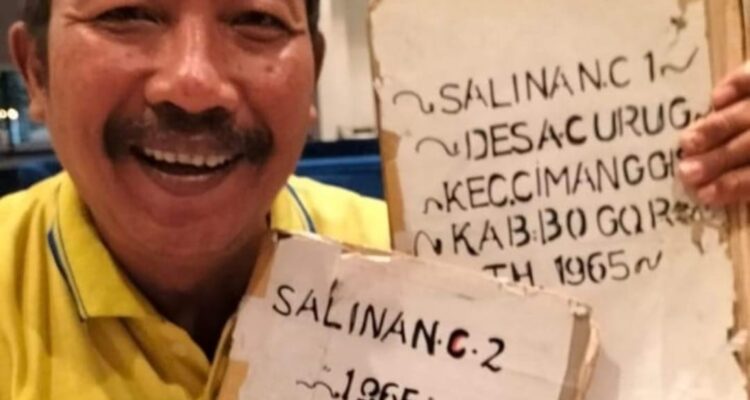 ~SALINAN.C 1~
~DESA.CURUG~
~KEC.CIMANGGIS
~KAB.BOGOR~
TH. 1965~
SALINAN.C.2
~1965